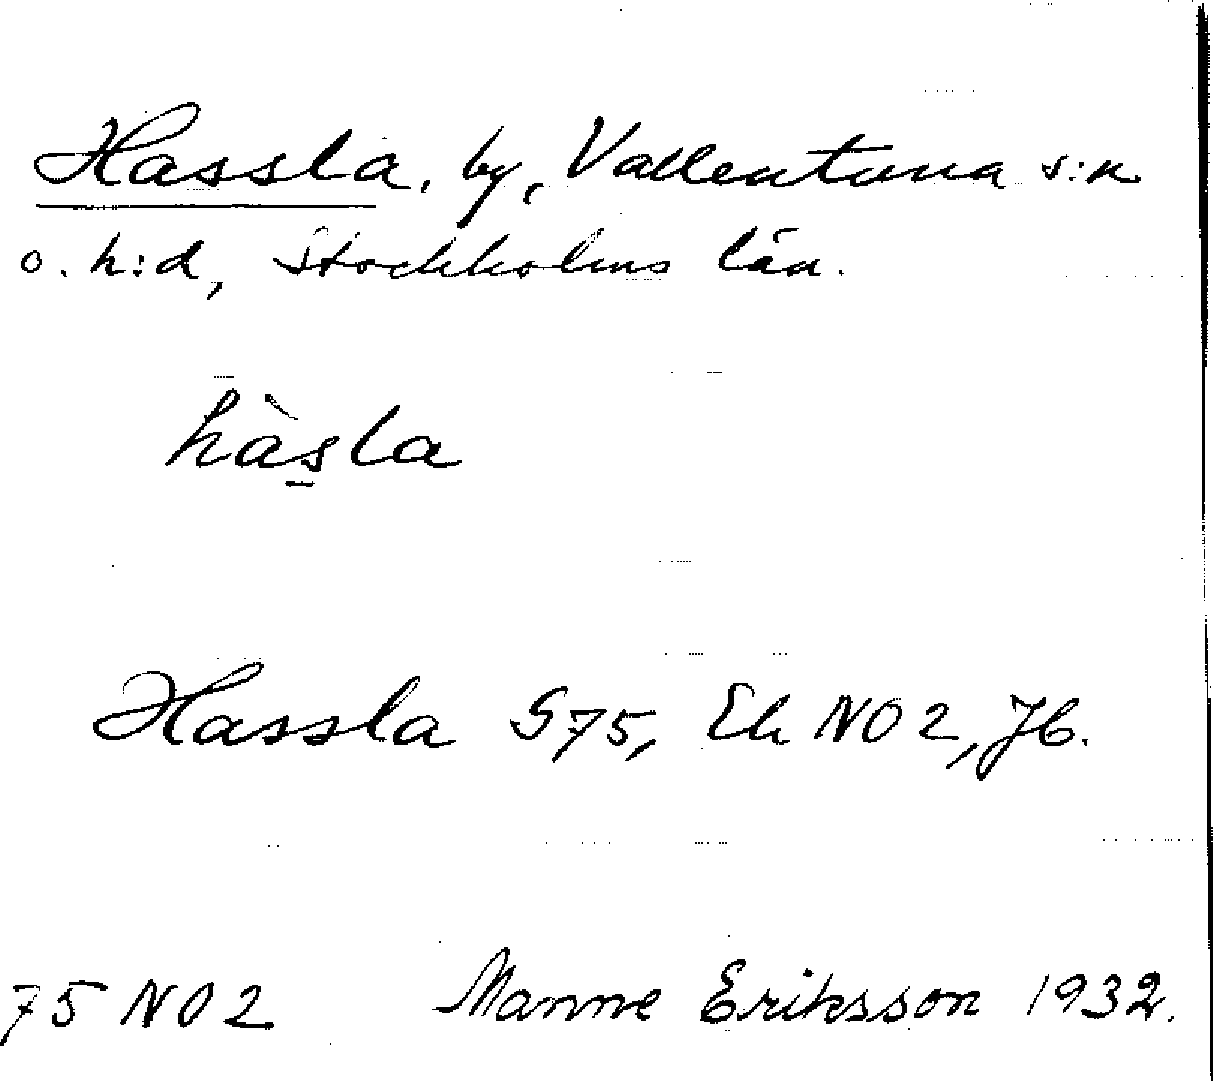 Hassla, by, Vallentuna s:n
o. h:d, Stockholms län.
hàs̱la
Hassla S75, Ek NO2, Jb.
75 NO2 Manne Eriksson 1932.